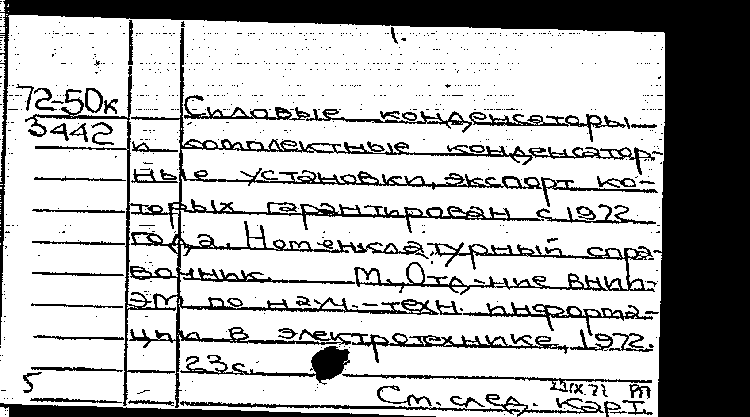 1.
72-50к Силовые конденсаторы
3442 и комплектные конденсатор-
ные установки, экспорт ко-
торых гарантирован с 1972
года. Номенклатурный спра-
вочник. М., Отд-ние ВНИИ-
ЭМ по науч.-техн. информа-
ции в электротехнике, 1972.
23с.
5
См. след. карт.